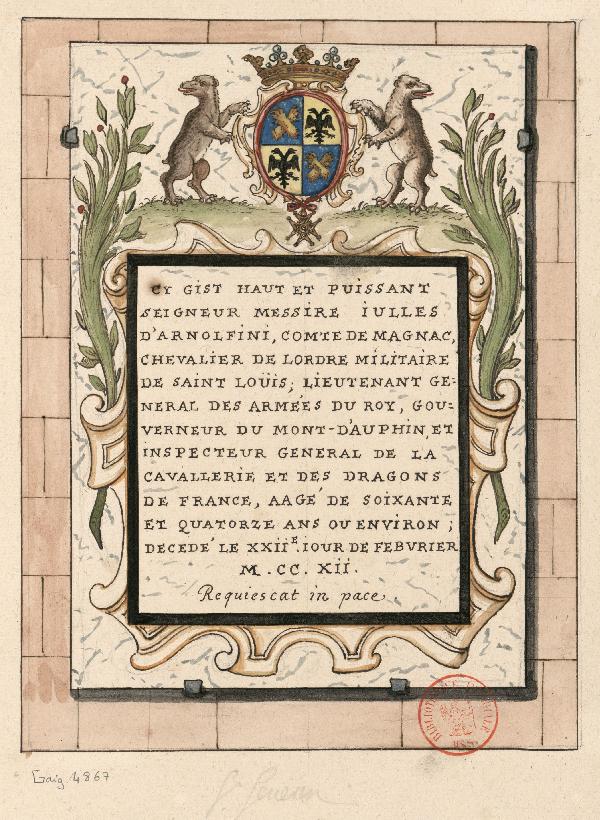 CY GIST HAUT ET PUISSANT
SEIGNEUR MESSIRE IULLES
D'ARNOLFINI, COMTE DE MAGNAC,
CHEVALIER DE LORDRE MILITAIRE
DE SAINT LOUÏS; LIEUTENANT GE=
NERAL DES ARMÉES DU ROY, GOU=
VERNEUR DU MONT-DAUPHIN, ET
INSPECTEUR GENERAL DE LA
CAVALLERIE ET DES DRAGONS
DE FRANCE, AAGÉ DE SOIXANTE
ET QUATORZE ANS OU ENVIRON;
DECEDÉ LE XXII^E. IOUR DE FEBVRIER
M.CC.XII.
Requiescat in pace.
Gaig. 4867